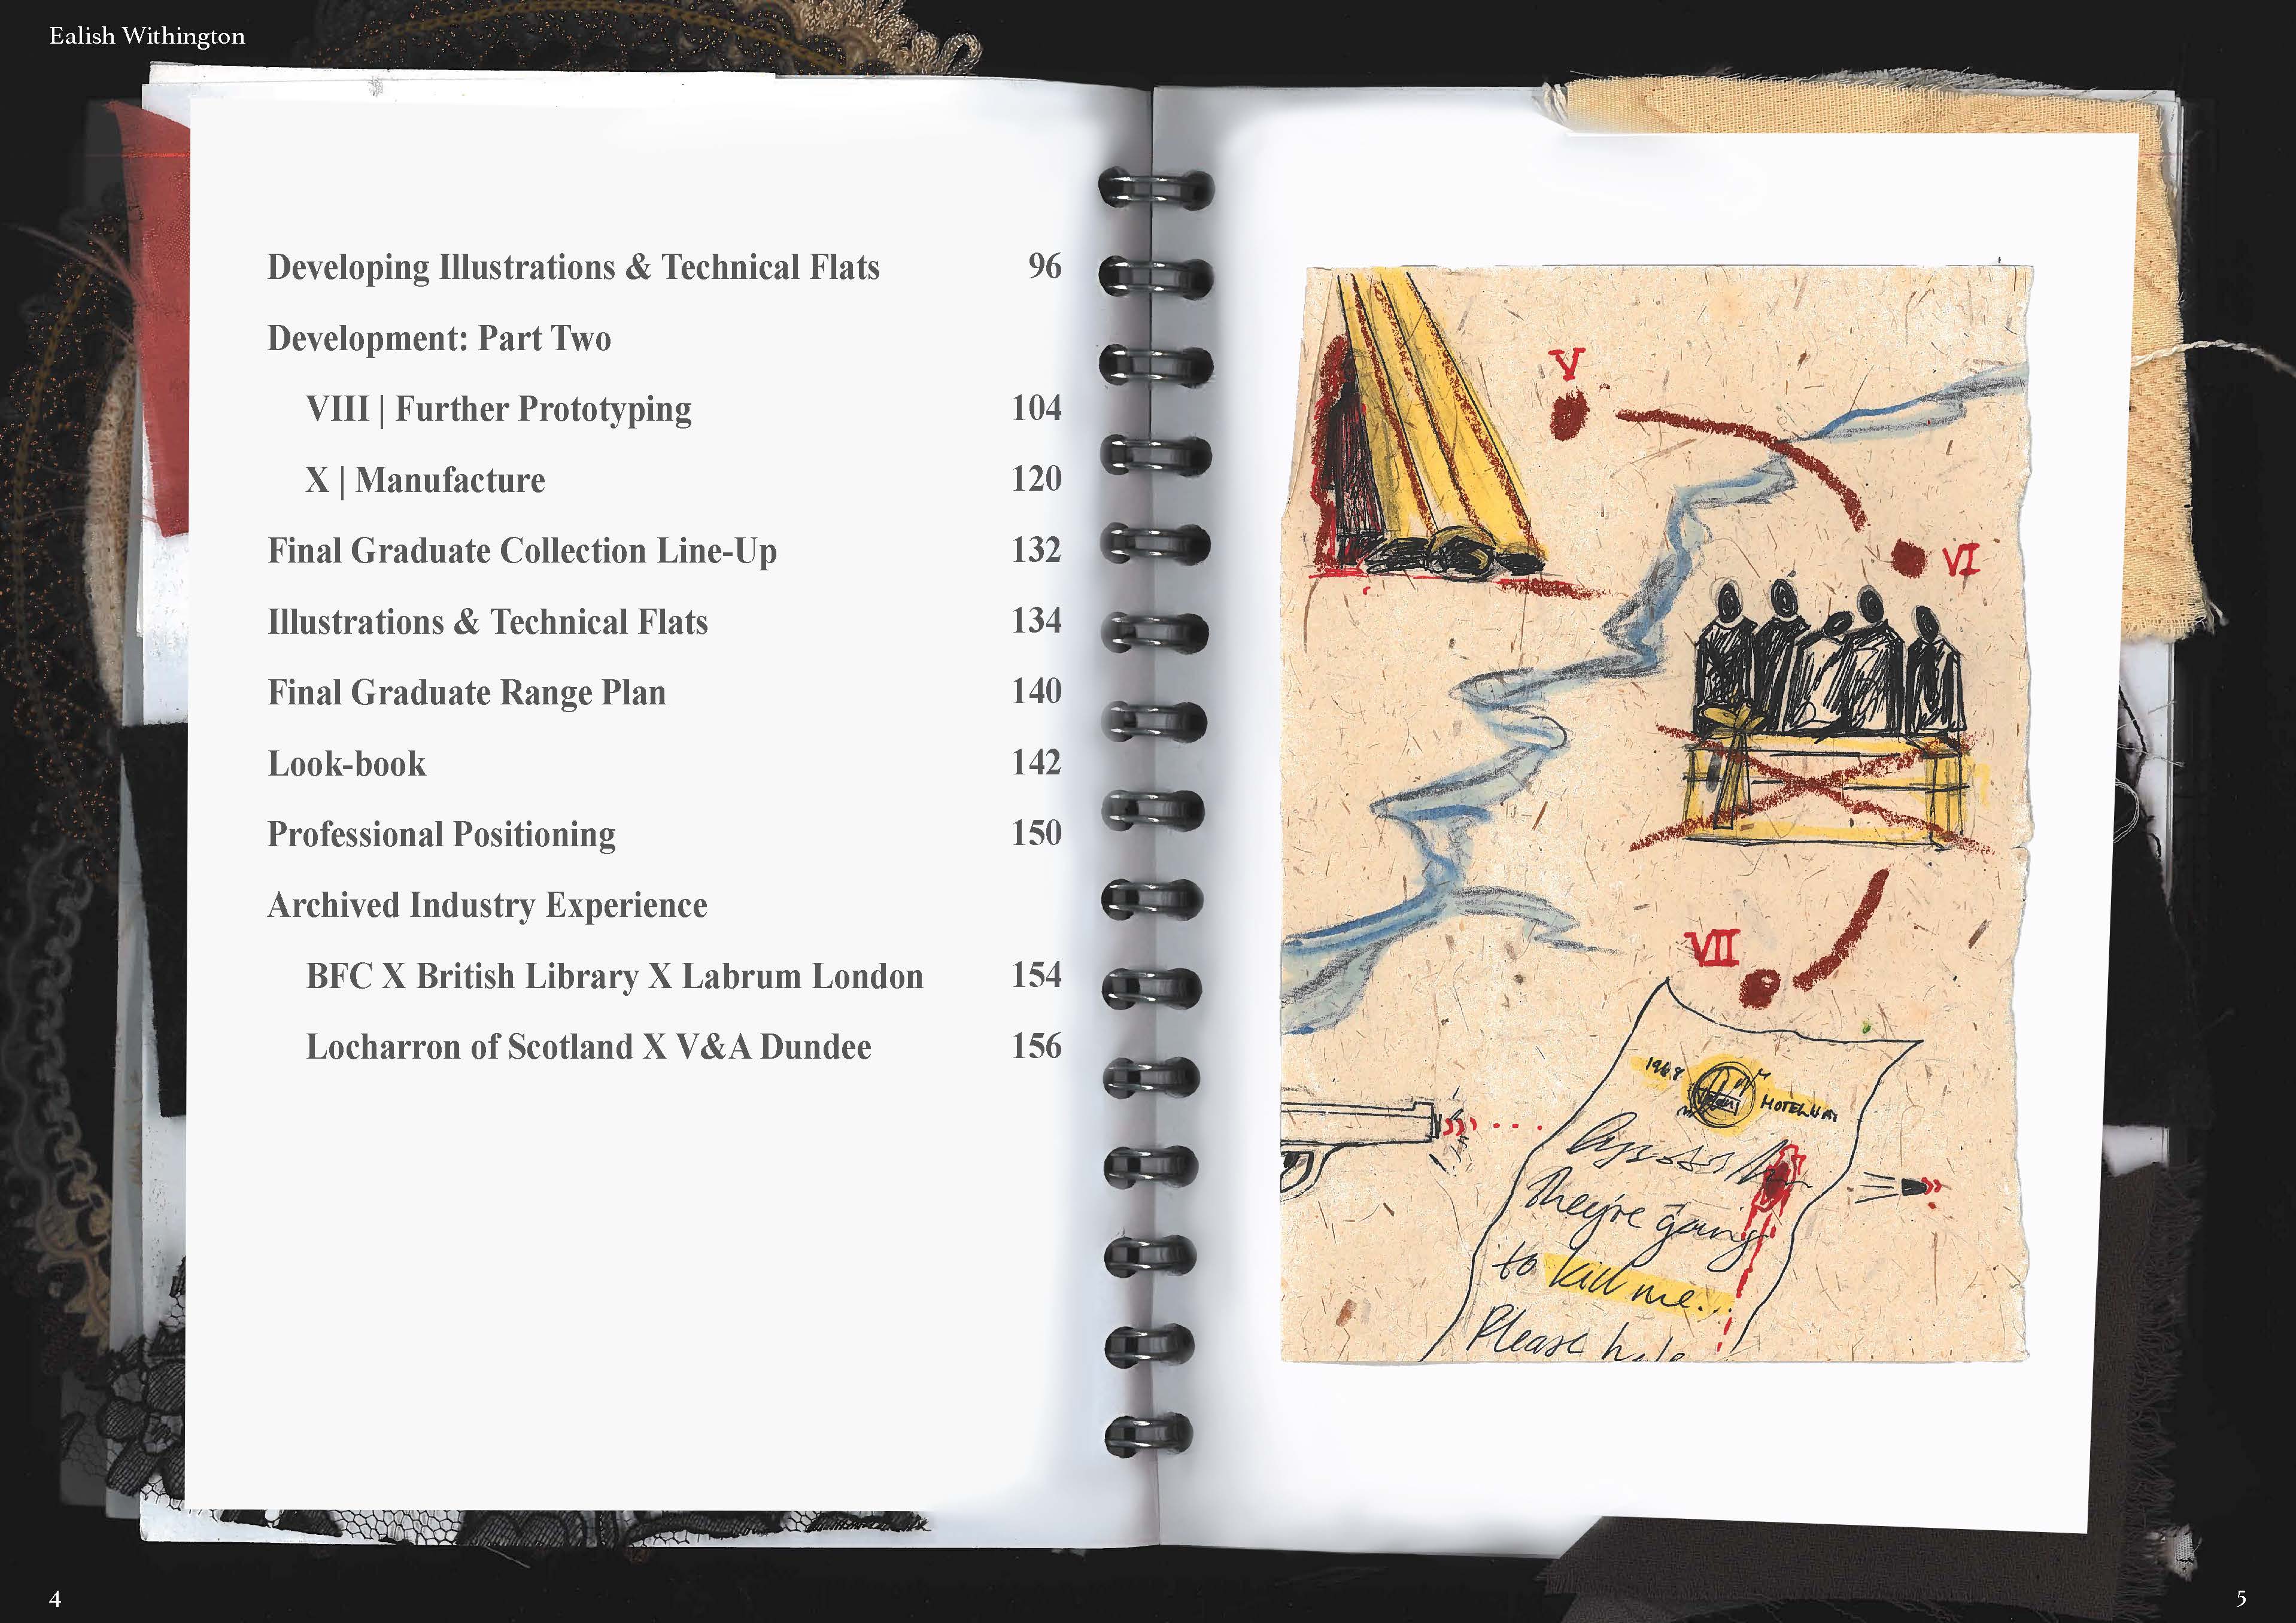 Ealish Withington
Developing Illustrations & Technical Flats 96
Development: Part Two
VIII | Further Prototyping 104
X | Manufacture 120
Final Graduate Collection Line-Up 132
Illustrations & Technical Flats 134
Final Graduate Range Plan 140
Look-book 142
Professional Positioning 150
Archived Industry Experience
BFC X British Library X Labrum London 154
Locharron of Scotland X V&A Dundee 156
V
VI
VII
1968
They're going
to kill me...
Please
4
5